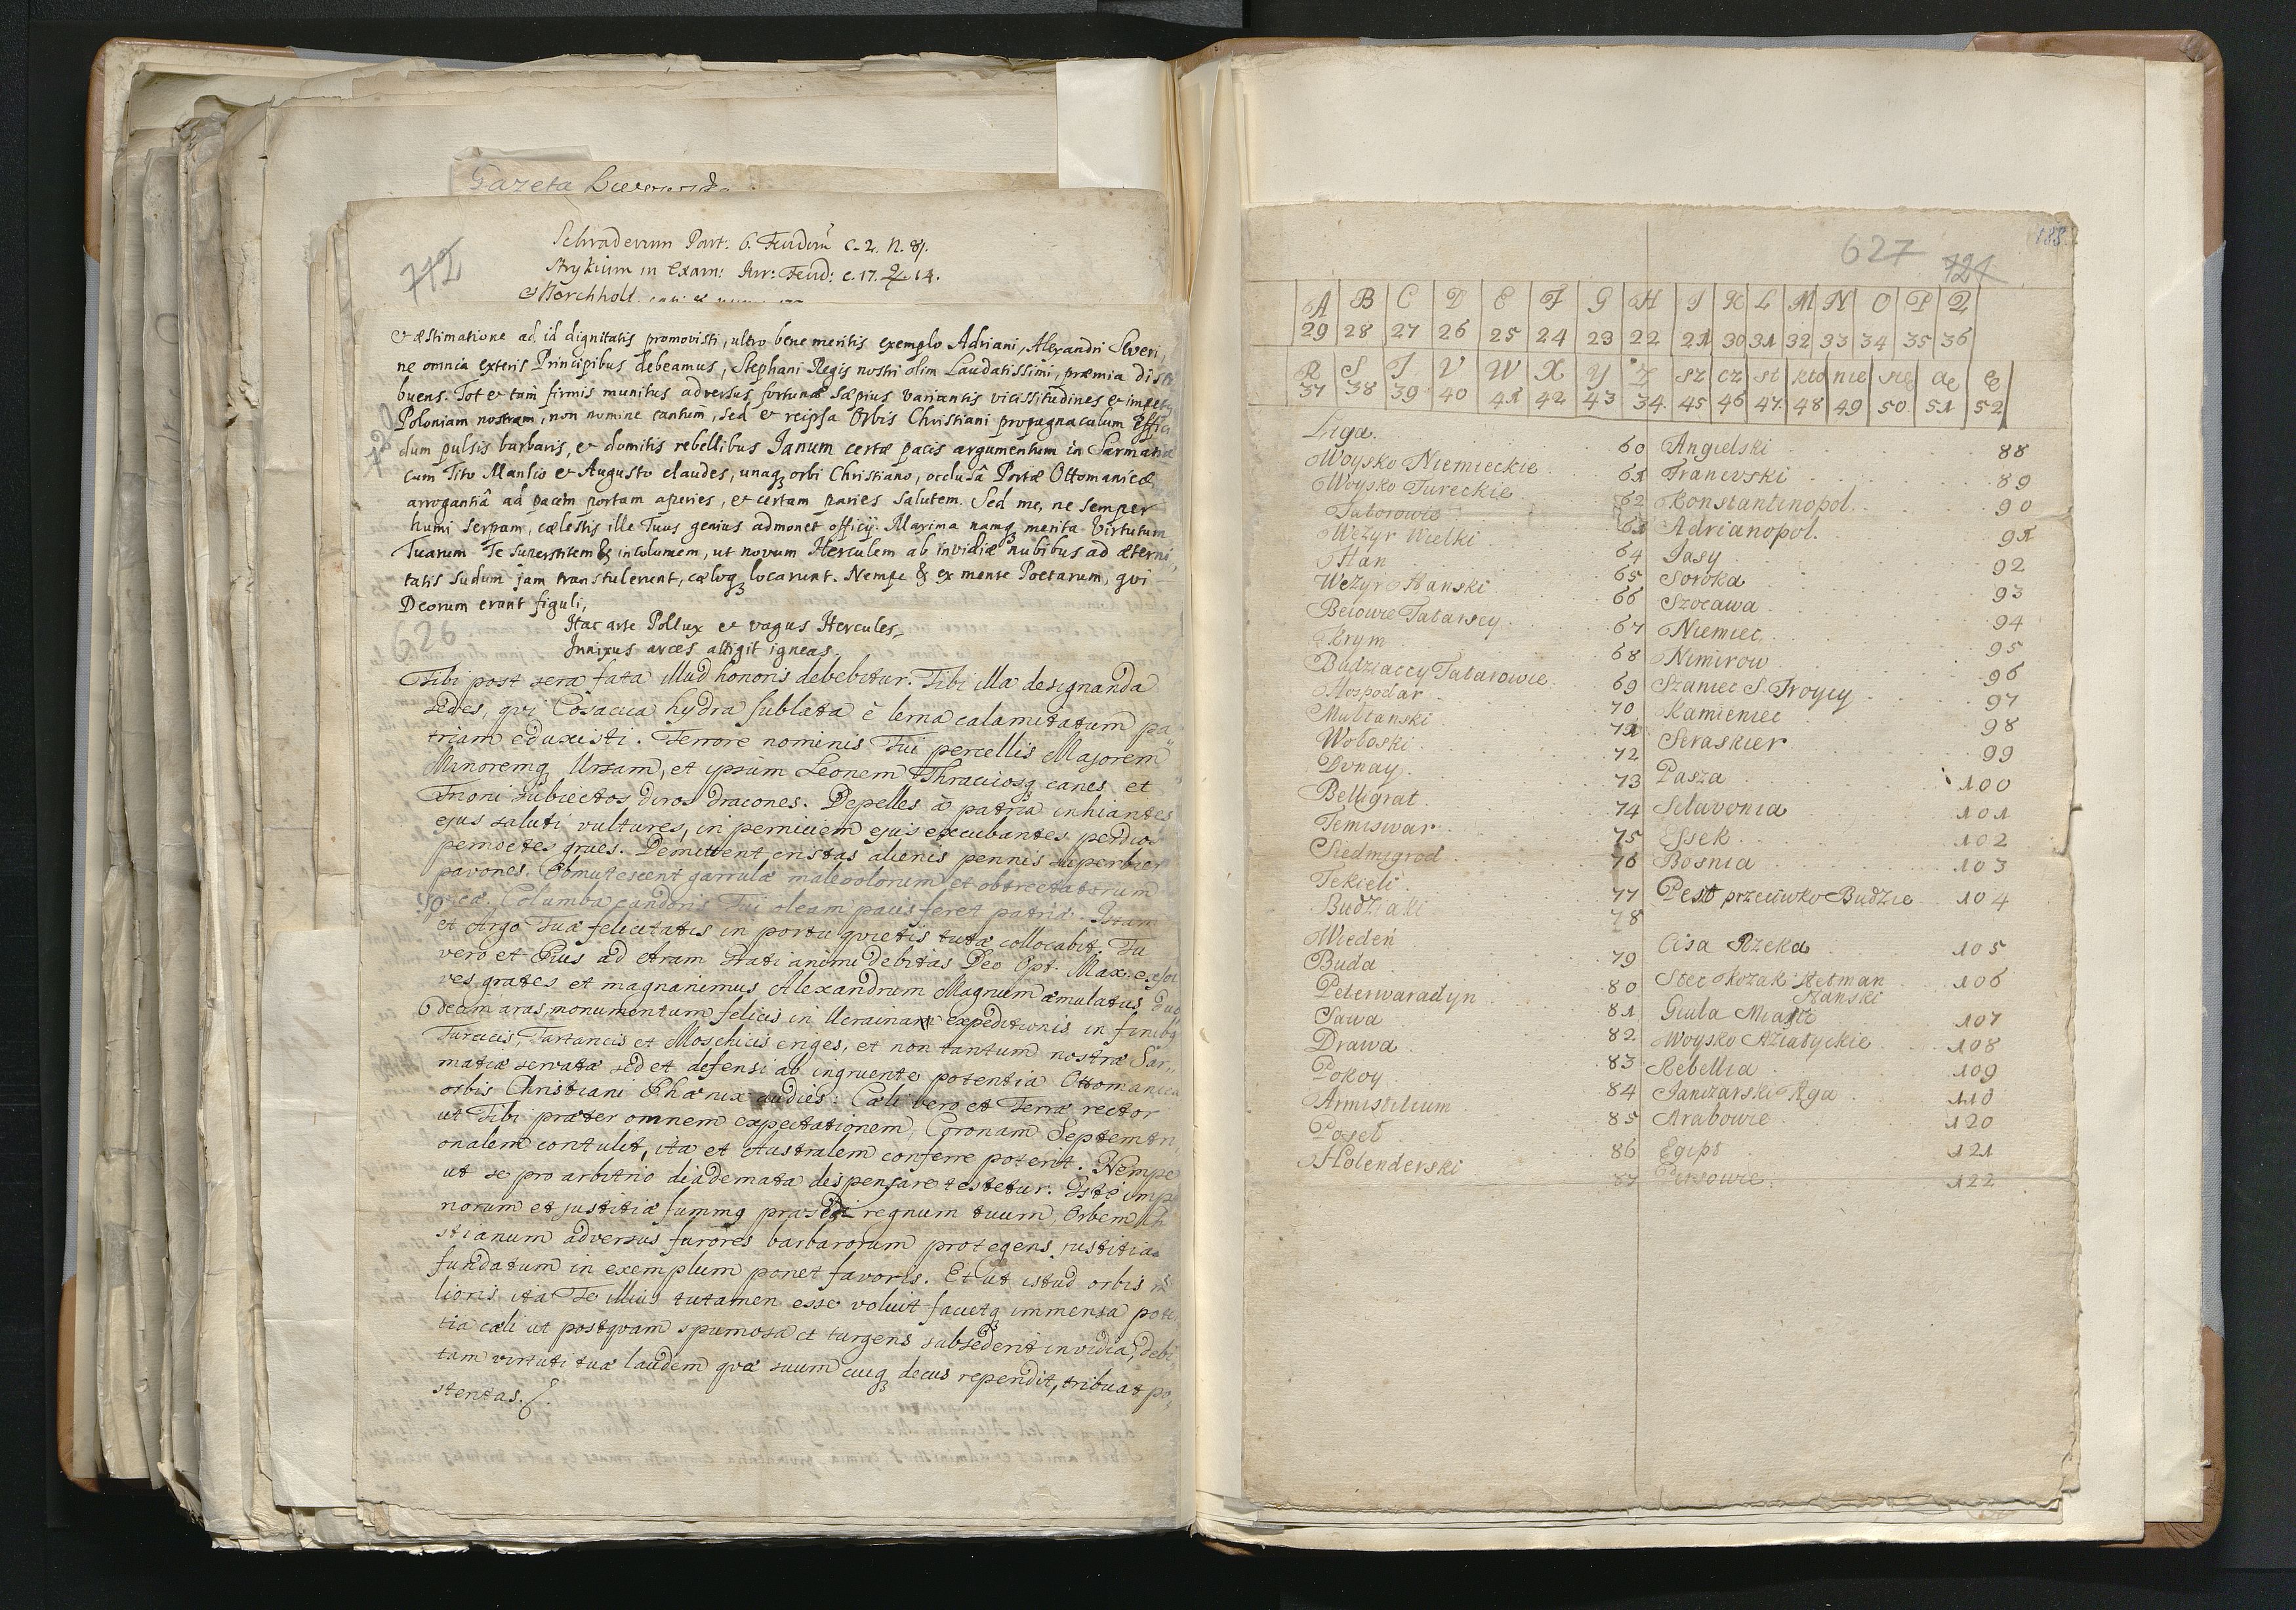 Gazeta
712
Schraderum Part: 6. Feudorũ c. 2. n. 81.
Strykium in Exam: Iur: Feud: c. 17. Q. 14.
& Æstimatione ad id dignitatis promovisti, ultro bene meritis exemplo Adriani, Alexandri Severi,
ne omnia exteris Principibus debeamus, Stephani Regis nostri olim Laudatissimi, præmia
buens. Tot & tam firmis munitus adversus fortunæ sæpius variantis vicissitudines &
Poloniam nostram, non nomine tantum, sed & reipsa Orbis Christiani propugnaculum
720
dum pulsis barbaris, & domitis rebellibus Ianum certæ pacis argumentum in Sarmatia
cum Tito Manlio & Augusto claudes, unaq; orbi Christiano, occlusâ Portæ Ottomanicæ
arrogantiâ ad pacem portam aperies, & certam paries salutem. Sed me, ne semper
humi serpam, cælestis ille Tuus genius admonet officij. Maxima namq; merita Virtutum
Tuarum Te superstitem & incolumem, ut novum Herculem ab invidiæ nubibus ad æterni,,
tatis sudum jam transtulerunt, cæloq; locarunt. Nempe & ex mente Poetarum, qvi
Deorum erant figuli,
626
Hac arte Pollux et vagus Hercules,
Innixus arces attigit igneas.
Tibi post sera fata illud honoris debebitur. Tibi illa designanda
sedes, qvi Cosacica hydra sublata è lerna calamitatum pa,,
triam eduxisti. Terrore nominis Tui percellis Majorem
Minoremq; Ursam, et ipsum Leonem Thraciosq; canes et
Trioni subiectos diros dracones. Depelles à patria inhiantes
ejus saluti vultures, in perniciem ejus excubantes perdios
pernoctes grues. Demittent cristas alienis pennis superbien
pavones. Obmutescent garrulæ malevolorum et obtrectatorum
picæ. Columba candoris Tui oleam pacis feret patriæ. Istam
et Argo Tuæ felicitatis in portu qvietis tuta collocabit. Tu
vero et Pius ad etram stati animi debitas Deo Opt. Max.
ves grates et magnanimus Alexandrum Magnum æmulatus Duo
decim aras, monumentum felicis in Ucrainam expeditionis in finibq
Turcicis, Tartaricis et Moschicis eriges, et non tantum nostræ Sar,,
matiæ servatæ sed et defensi ab ingruente potentia Ottomanica
orbis Christiani Phænix audies. Cæli vero et Terræ rector
ut Tibi præter omnem expectationem, Coronam Septemtri
onalem contulit, ita et Australem conferre poterit. Nempe
ut se pro arbitrio diademata dispensare testetur. Iste
norum et justitiæ summq præses regnum tuum, Orbem
stianum adversus furores barbarorum protegens, justitia
fundatum in exemplum ponet favoris. Et ut istud orbis
lioris ita Te illius tutamen esse voluit facietq; immensa pote
tia cæli ut postqvam spumosa et turgens subsederit invidia, debi,,
tam virtuti tuæ laudem qvæ suum cuiq; decus rependit, tribuat po,,
steritas.
188.
627
721
A B C D E F G H I K L M N O P Q
29 28 27 26 25 24 23 22 21 30 31 32 33 34 35 36
R S T V W X Y Z sz cz st kto nie się ą ę
37 38 39 40 41 42 43 34. 45 46 47. 48 49 50 51 52
Liga. 60
Woysko Niemieckie 61
Woysko Tureckie 62
Tatarowie 63
Wezyr Wielki 64
Han 65
Wezyr Hanski 66
Beiowie Tatarscy 67
Krym 68
Budziaccy Tatarowie 69
Hospodar 70
Multanski 71
Wołoski 72
Dunay 73
Belligrat 74
Temiswar 75
Siedmigrod 76
Tekieli 77
Budziaki 78
Wiedeń 79
Buda 80
Peterwaradyn 81
Sawa 82
Drawa 83
Pokoy 84
Armistitium 85
Poseł 86
Holenderski 87
Angielski 88
Francuski 89
Konstantinopol. 90
Adrianopol. 91
Jasy 92
Soroka 93
Szocawa 94
Niemiec 95
Nimirow 96
Szaniec S. Troycy 97
Kamieniec 98
Seraskier 99
Pasza 100
Sclavonia 101
Essek 102
Bosnia 103
Pest przeciwko Budzie 104
Cisa Rzeka 105
Stec Kozak Hetman 106
Hanski
Giula Miasto 107
Woysko Aziatyckie 108
Rebellia 109
Janczarski Aga 110
Arabowie 120
Egipt 121
Persowie 122